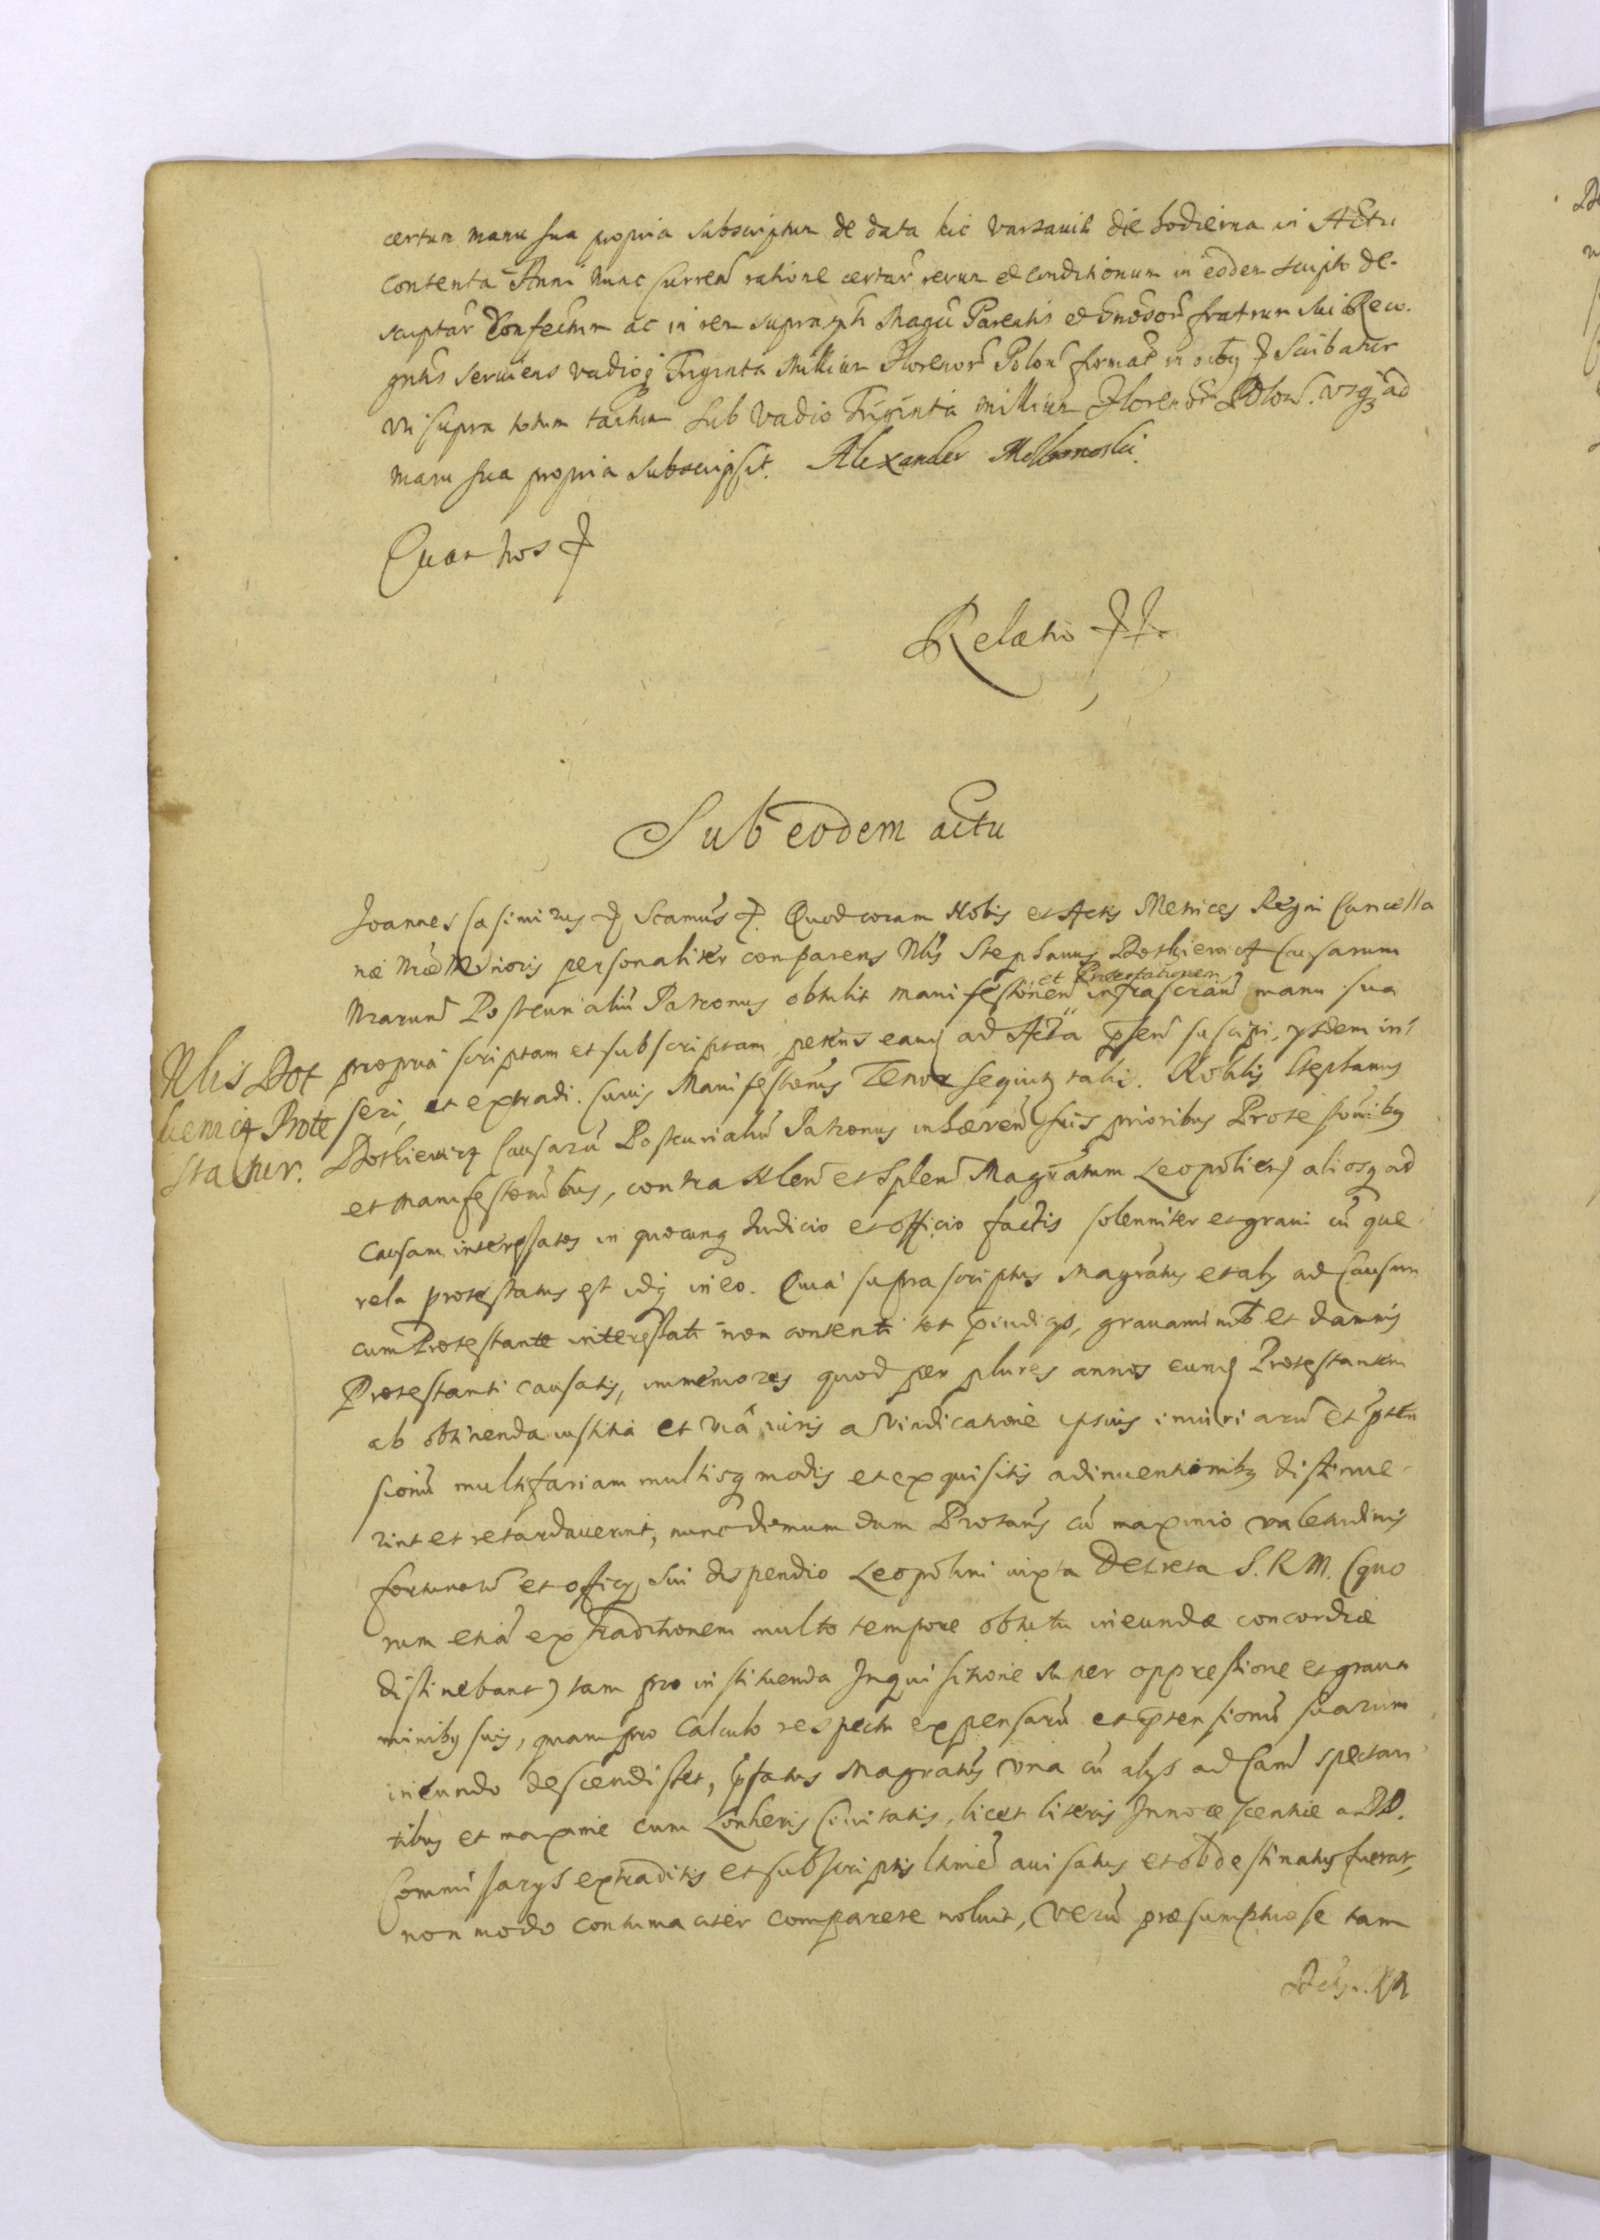 certum manu sua propria subscriptum de data hic Varsaviæ die hodierna in Actu
contenta Anni nunc curren ratione certar rerum et conditionum in eodem scripto de-
scriptar Confectum ac in rem suprascpti Magci Parentis et Gnosor fratrum sui Reco-
gntis serviens vadioq Triginta Millium Florenor Polon firmat in
uti supra totum tactum sub vadio Triginta millium Florenor Polon.
manu sua propria subscripsit. Alexander
Quar hos
Relatio
Sub eodem actu
Joannes Casimirus Scamus Quod coram Nobis et Actis Metrices Regni Cancella
riæ Nræ Minoris personaliter comparens Nblis Stephanus Dotkiewicz Causarum
Nrarum Postcurialium Patronus obtulit manifestonem et Protestationem infrascriam manu sua
propria scriptam et subscriptam petens eam ad Acta psen suscipi, ysdem in-
seri, et extradi. Cuius Manifestonis Tenor sequitq talis. Nobilis Stephanus
Nblis Dot
kiewicz Prote
statur.
Dotkiewicz Causaru Postcurialiu Patronus inhæren suis prioribus Protestonibq
et manifestonibus, contra et Splen Magratum Leopolien aliosq ad
Causam interessatos in quocunq Judicio et officio factis solenniter et gravi cu que
rela protestatus est idq in eo. Quia suprascriptus Magratus et aly ad Causam
cum Protestante interessati non contenti tot piudicys, gravaminib et damnis
Protestanti causatis, immemores quod per plures annos eund Protestantem
ab obtinenda iustitia et via iuris a vindicatione ipsius iniuriaru et pten
sionu multifariam multisq modis et exquisitis adinventionibq distinue-
rint et retardaverint, nunc demum dum Protans cu maximo valetudinis
fortunaru et officy sui dispendio Leopolim iuxta Decreta S. R. M. (quo
rum etia extraditionem multo tempore obtutu ineundæ concordiæ
distinebant) tam pro instituenda Inquisitione super oppressione et grava
minibq suis, quam pro Calculo respectu expensaru et ptensionu suarum
ineundo descendisset, pfatus Magratus una cu alys ad Cam spectan-
tibus et maxime cum Civitatis, licet literis Innotescentiæ a
Commissarys extraditis et subscriptis avisatus et obdestinatus fuerat,
non modo contumaciter comparere noluit, veru præsumptuose tam